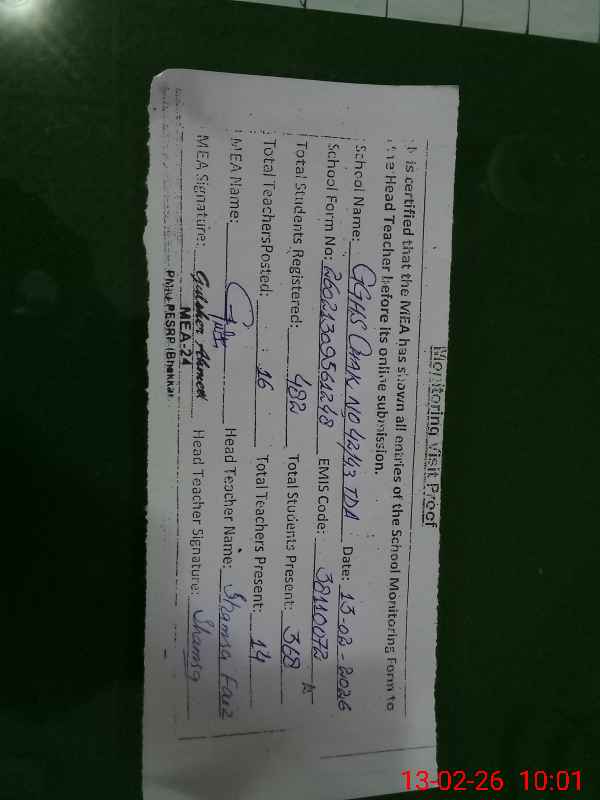 Monitoring Visit Proof
It is certified that the MEA has shown all entries of the School Monitoring Form to
the Head Teacher before its online submission.
School Name: GGHS Chak No 42/43 TDA Date: 13-02-2026
School Form No: 26021309561248 EMIS Code: 38110072
Total Students Registered: 482 Total Students Present: 368
Total Teachers Posted: 16 Total Teachers Present: 14
MEA Name: Head Teacher Name: Shamsa Faiz
MEA Signature: Gulsher Ahmed Head Teacher Signature: Shamsa
MEA-24
PESRP (Bhakkar)
13-02-26 10:01